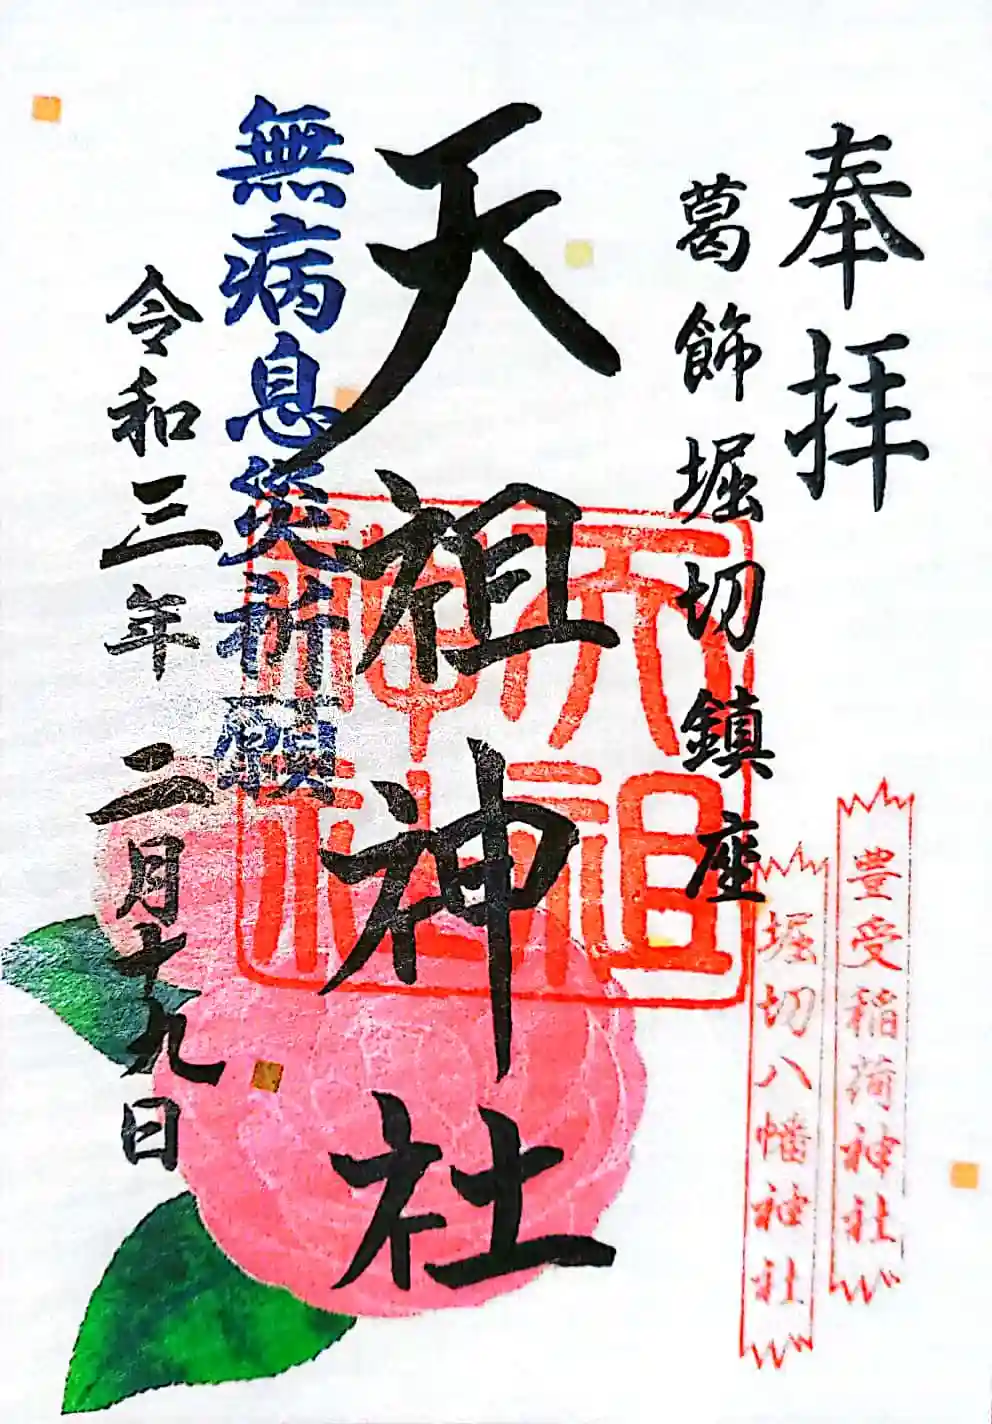 奉拝
葛飾堀切鎮座
豊受稲荷神社
堀切八幡神社
天祖神社
天祖
神社
無病息災祈願
令和三年 二月十九日